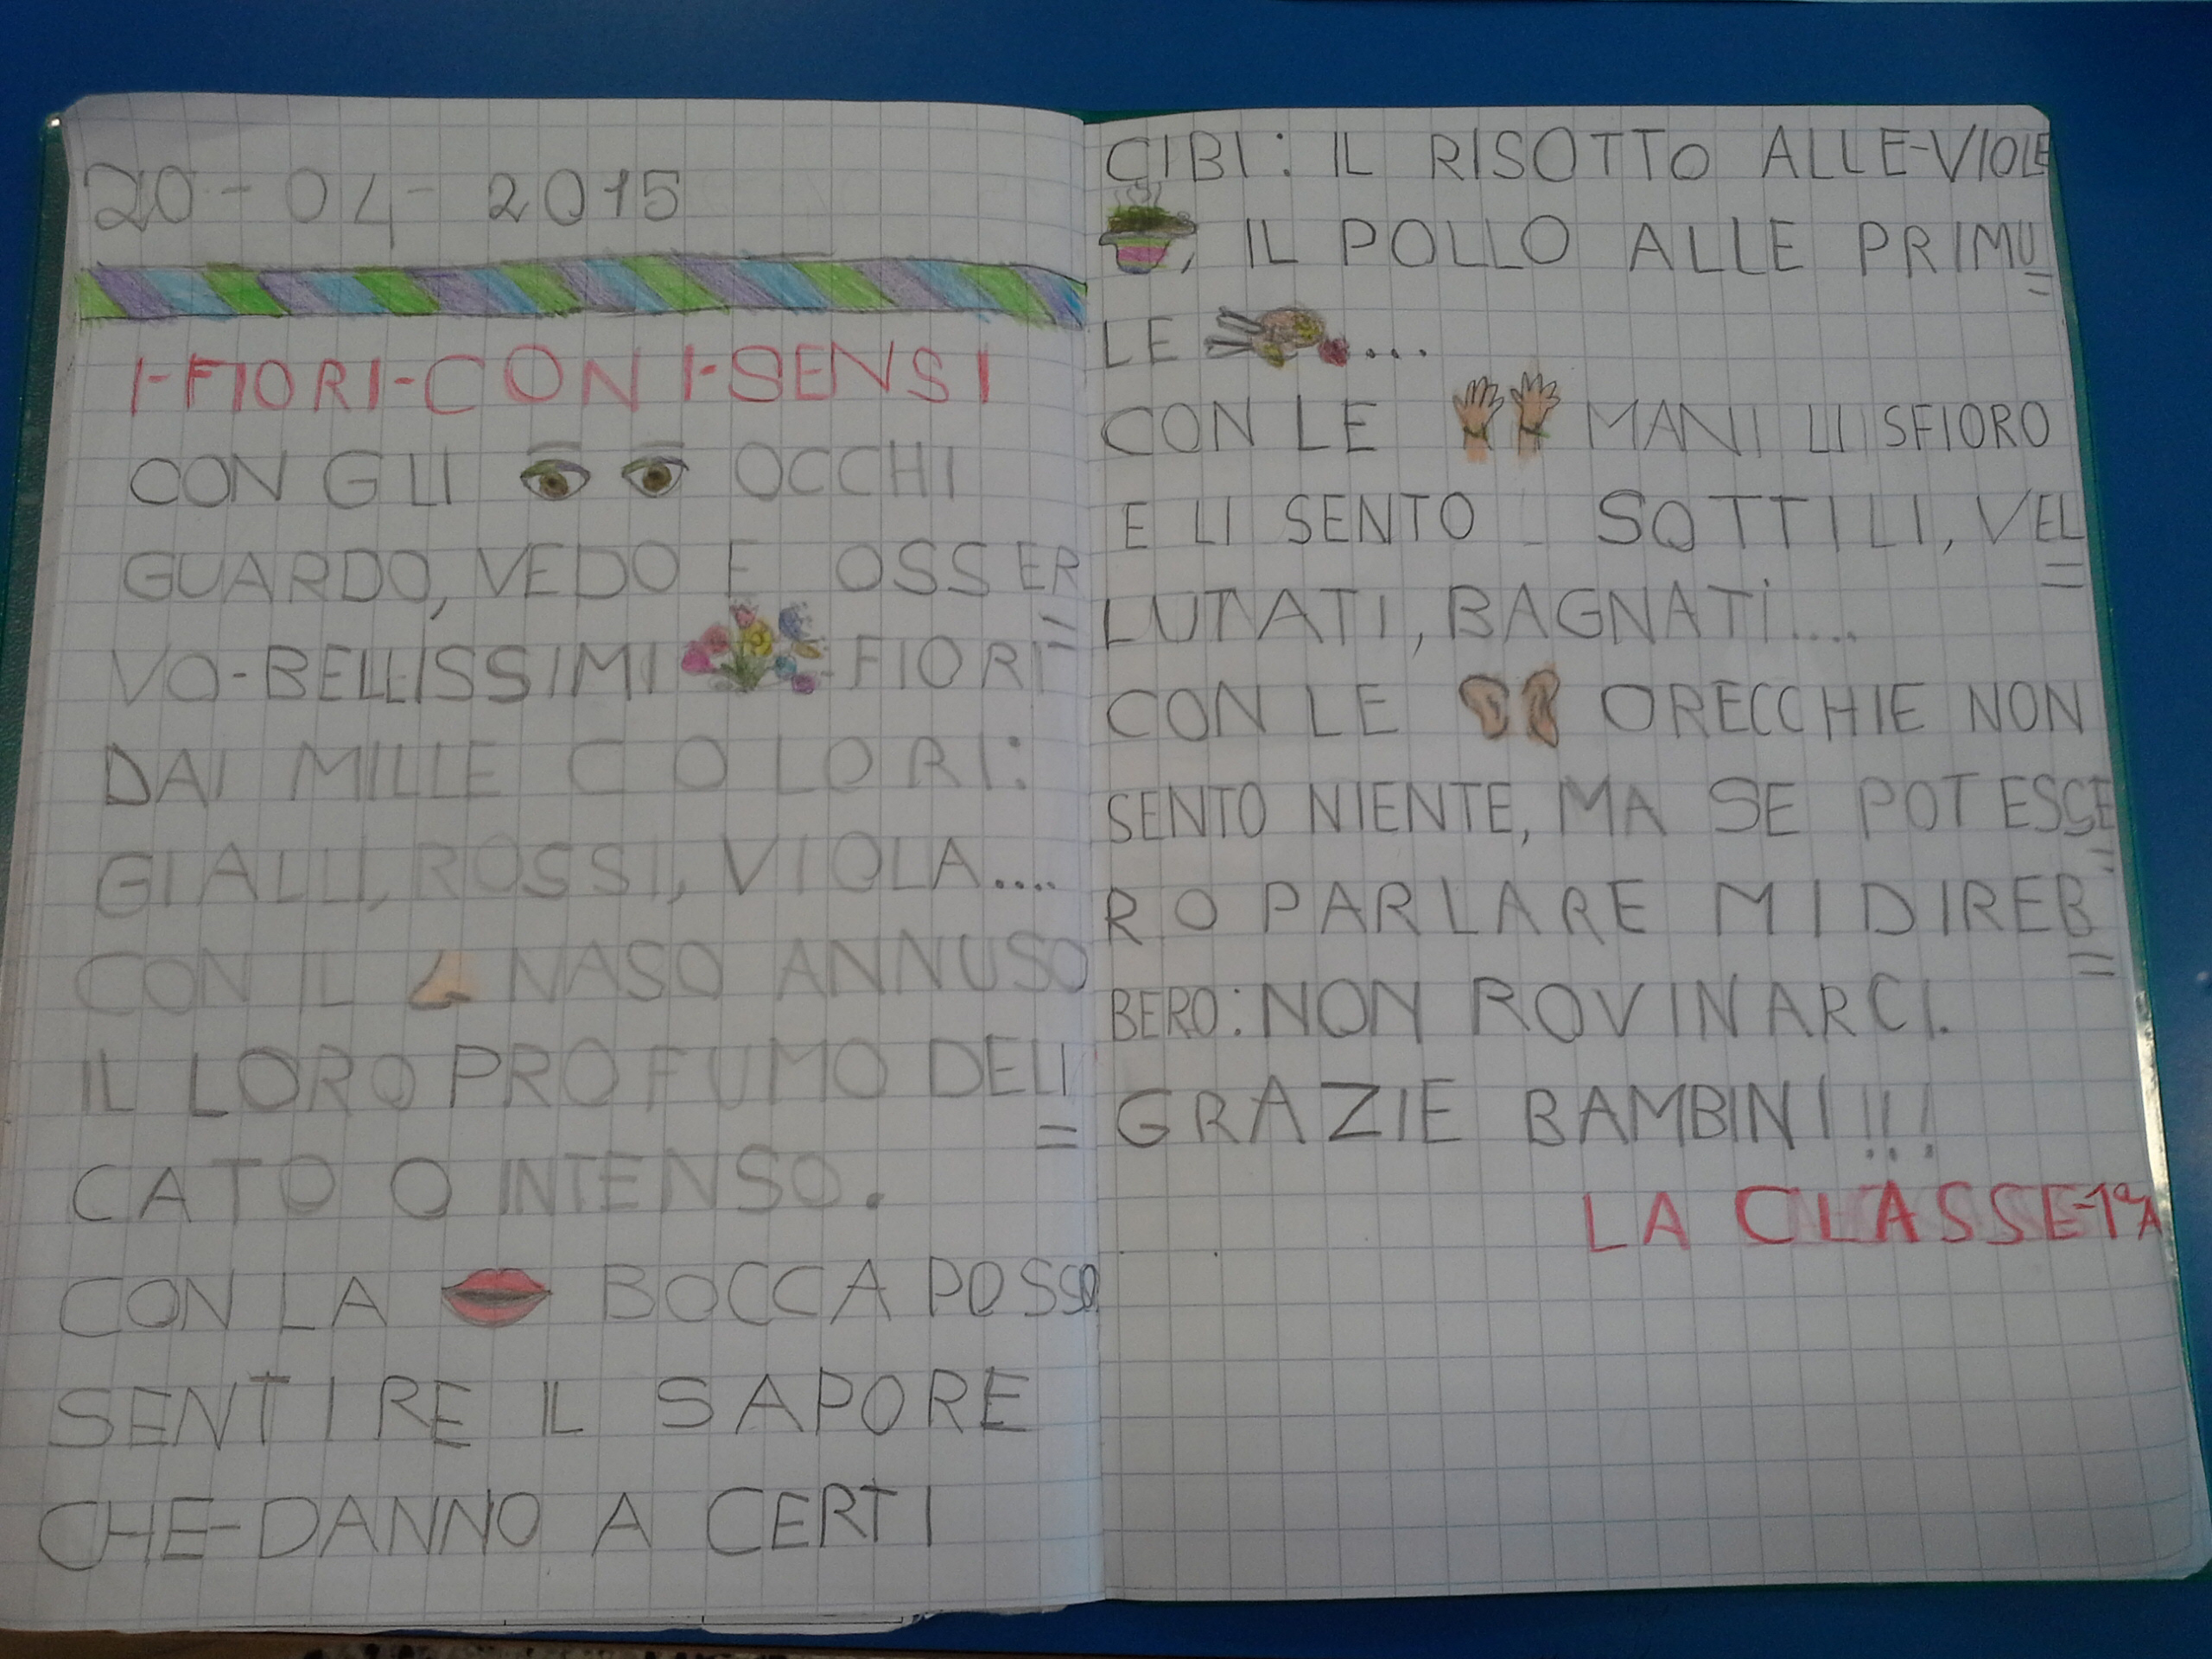 20-04-2015
I-FIORI-CON I-SENSI
CON GLI OCCHI
GUARDO, VEDO E OSSER=
VO-BELLISSIMI FIORI
DAI MILLE COLORI:
GIALLI, ROSSI, VIOLA....
CON IL NASO ANNUSO
IL LORO PROFUMO DELI=
CATO O INTENSO.
CON LA BOCCA POSSO
SENTIRE IL SAPORE
CHE-DANNO A CERTI
CIBI: IL RISOTTO ALLE-VIOLE
, IL POLLO ALLE PRIMU=
LE ...
CON LE MANI LI SFIORO
E LI SENTO SOTTILI, VEL=
LUTATI, BAGNATI....
CON LE ORECCHIE NON
SENTO NIENTE, MA SE POTESSE=
RO PARLARE MI DIREB=
BERO: NON ROVINARCI.
GRAZIE BAMBINI!!!
LA CLASSE-1ªA